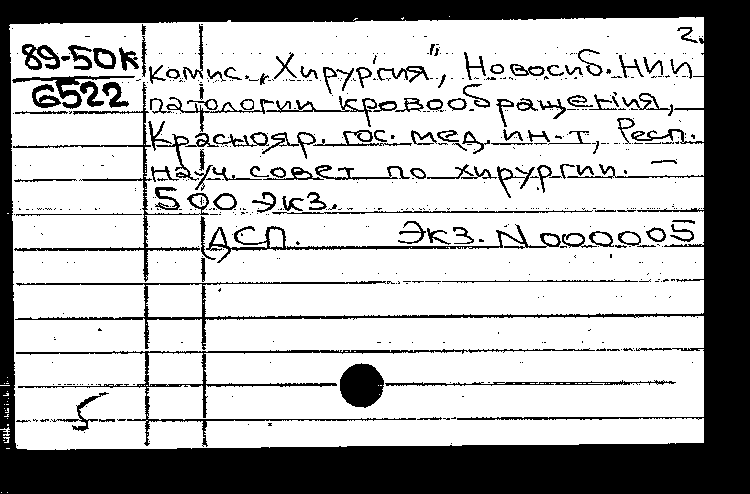 2.
89-50к
6522
комис. „Хирургия", Новосиб. НИИ
патологии кровообращения,
Краснояр. гос. мед. ин-т, Респ.
науч. совет по хирургии. —
500 экз.
АСП. Экз. N 000005
5